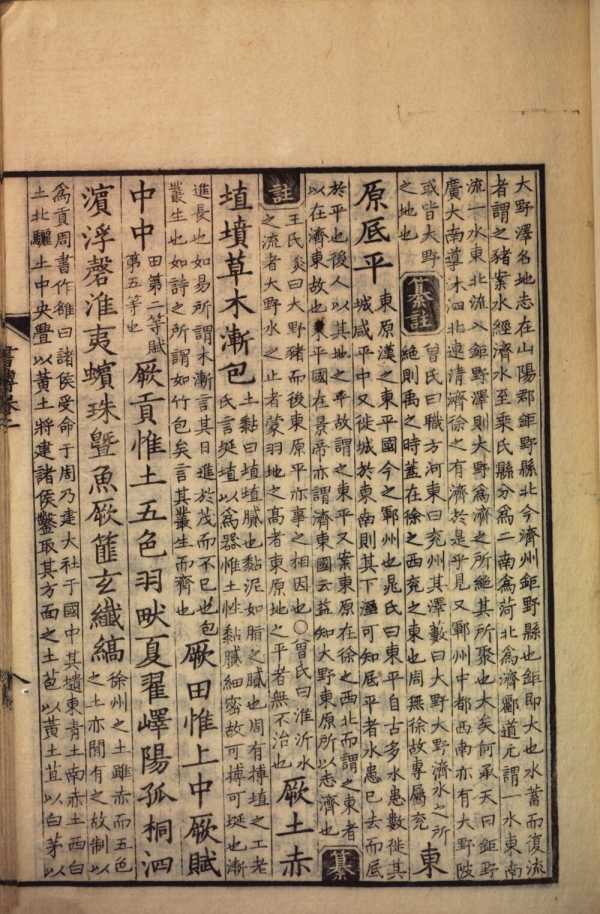 大野澤名地志在山陽郡鉅野縣北今濟州鉅野縣也鉅即大也水蓄而復流
者謂之豬案水經濟水至乘氏縣分爲二南爲菏北爲濟酈道元謂一水東南
流一水東北流入鉅野澤則大野爲濟之所絕其所聚也大矣何承天曰鉅野
廣大南導洙泗北連清濟徐之有濟於是乎見又鄆州中都西南亦有大野陂
或皆大野
之地也
纂註
曾氏曰職方河東曰兗州其澤藪曰大野大野濟水之所
絕則禹之時蓋在徐之西兗之東也周無徐故專屬兗
東
原底平
東原漢之東平國今之鄆州也晁氏曰東平自古多水患數徙其
城咸平中又徙城於東南則其下濕可知底平者水患已去而底
於平也後人以其地之平故謂之東平又案東原在徐之西北而謂之東者
以在濟東故也東平國在景帝亦謂濟東國云益知大野東原所以志濟也
纂
註
王氏炎曰大野豬而後東原平亦事之相因也○曾氏曰淮沂水
之流者大野水之止者蒙羽地之高者東原地之平者無不治也
厥土赤
埴墳草木漸包
土黏曰埴埴膩也黏泥如脂之膩也周有摶埴之工老
氏言埏埴以爲器惟土性黏膩細密故可摶可埏也漸
進長也如易所謂木漸言其日進於茂而不已也包
叢生也如詩之所謂如竹包矣言其叢生而齊也
厥田惟上中厥賦
中中
田第二等賦
第五等也
厥貢惟土五色羽畎夏翟嶧陽孤桐泗
濱浮磬淮夷蠙珠曁魚厥篚玄纖縞
徐州之土雖赤而五色
之土亦間有之故制以
爲貢周書作雒曰諸侯受命于周乃建大社于國中其壝東青土南赤土西白
土北驪土中央舋以黃土將建諸侯鑿取其方面之土苞以黃土苴以白茅以